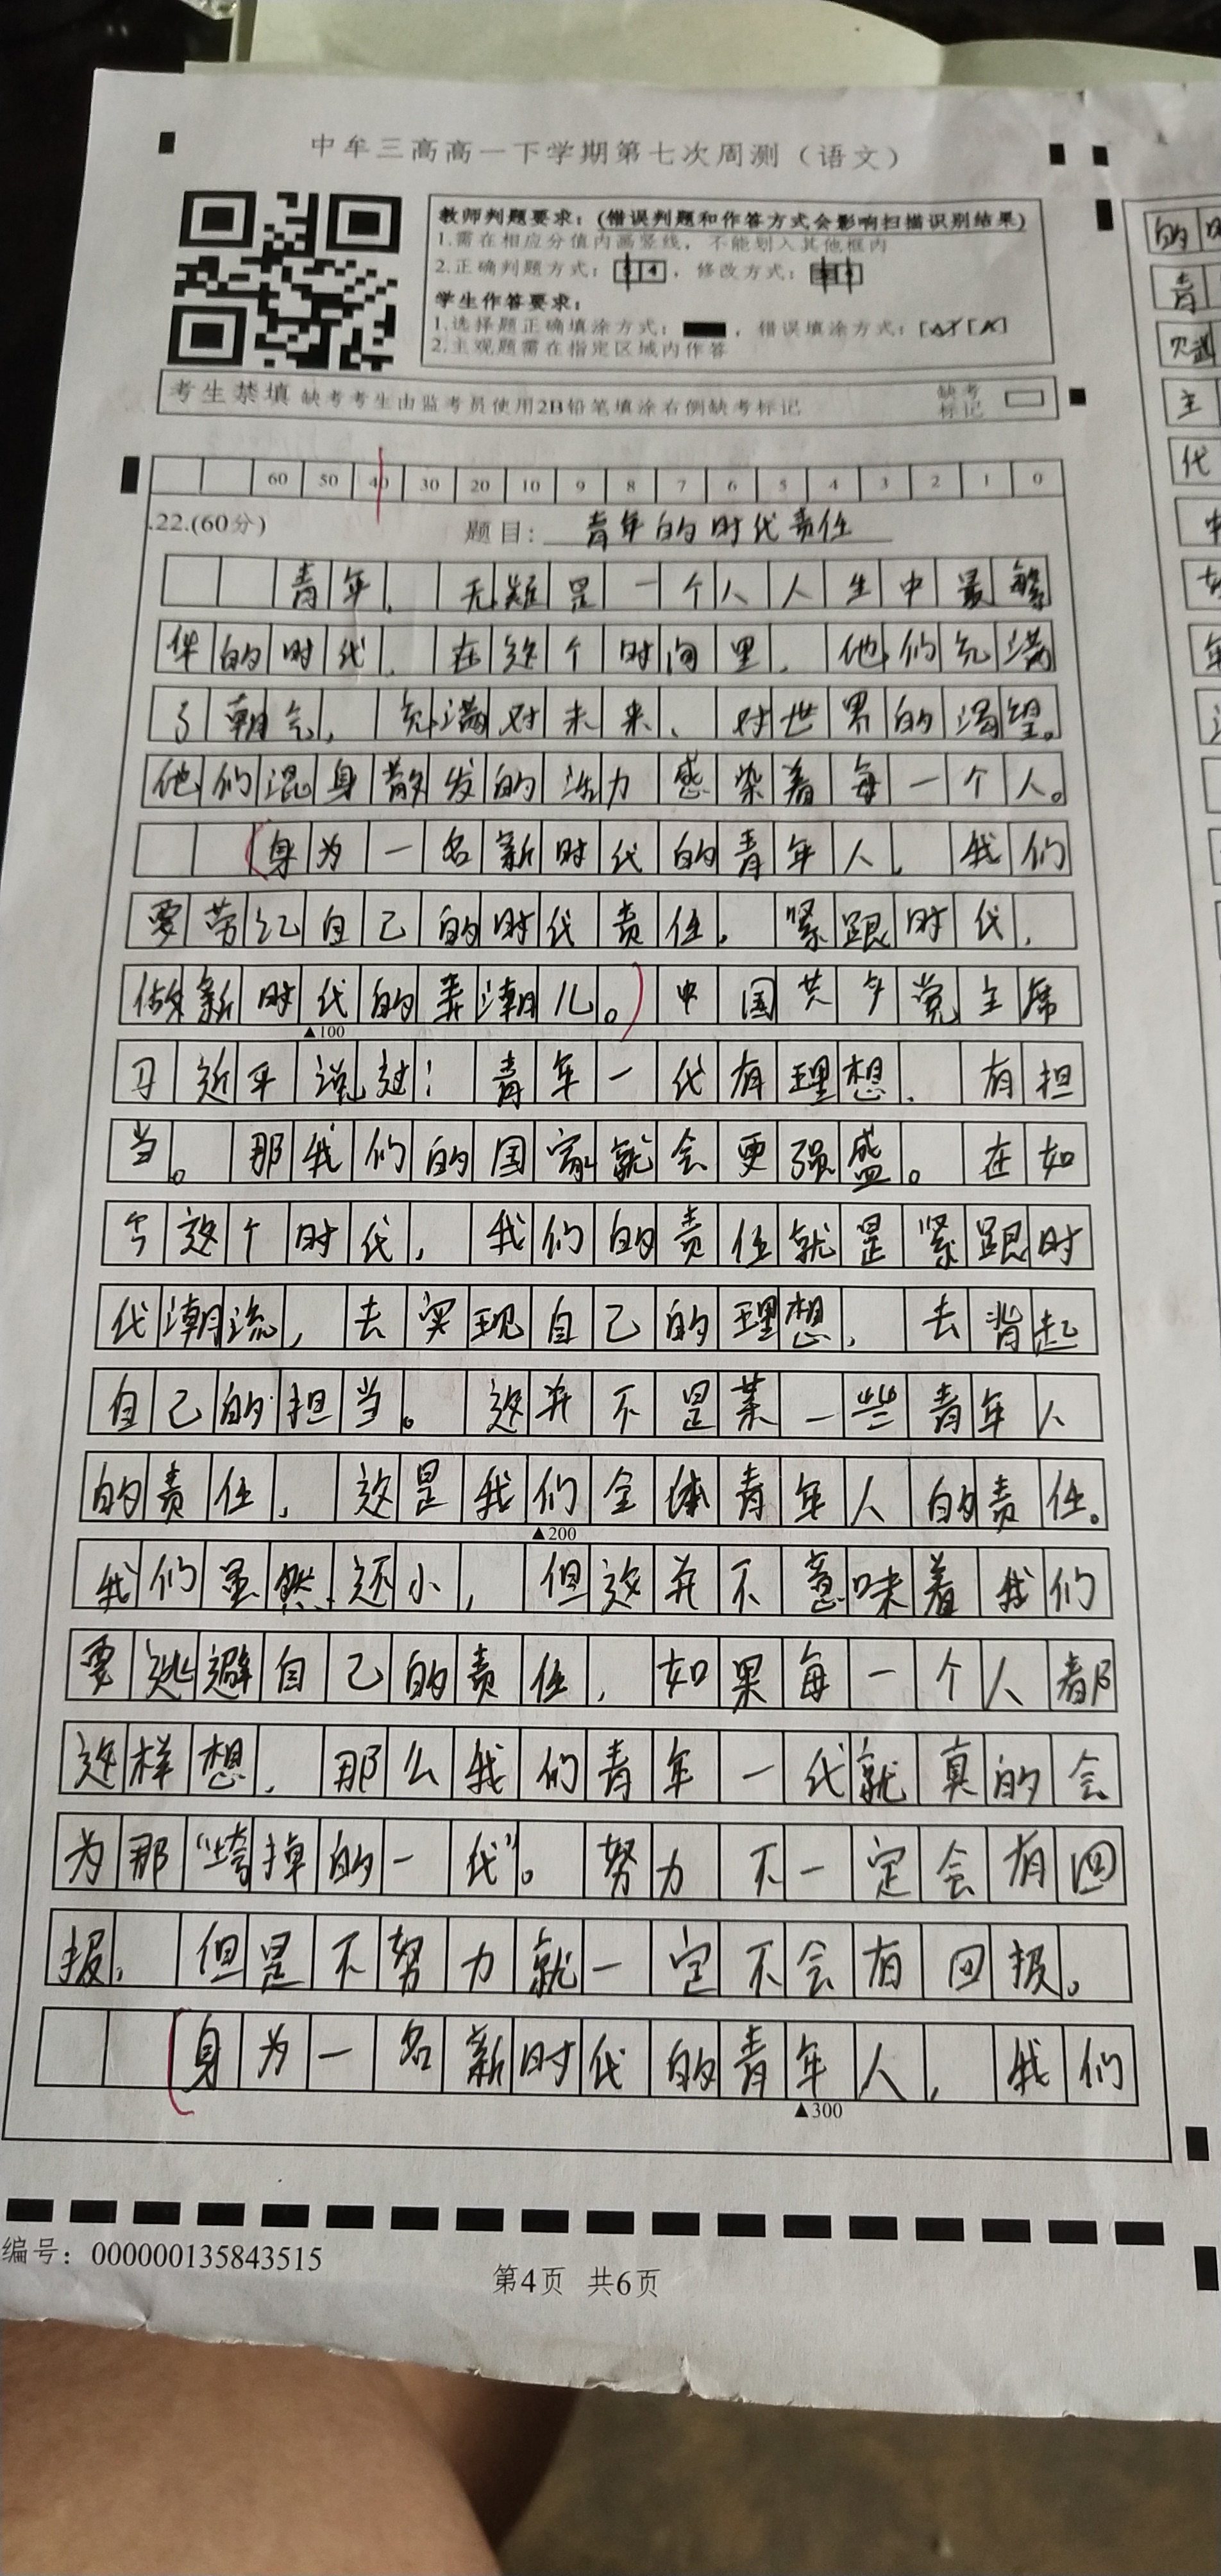 中牟三高高一下学期第七次周测（语文）
教师判题要求：(错误判题和作答方式会影响扫描识别结果)
1.需在相应分值内画竖线，不能划入其他框内
2.正确判题方式： 4 ，修改方式：
学生作答要求：
1.选择题正确填涂方式： ，错误填涂方式：
2.主观题需在指定区域内作答
考生禁填 缺考考生由监考员使用2B铅笔填涂右侧缺考标记
缺考
标记
60 50 40 30 20 10 9 8 7 6 5 4 3 2 1 0
.22.(60分) 题目：青年的时代责任
青年，无疑是一个人人生中最繁
华的时代，在这个时间里，他们充满
了朝气，充满对未来、对世界的渴望。
他们混身散发的活力感染着每一个人。
身为一名新时代的青年人，我们
要劳记自己的时代责任。紧跟时代，
做新时代的弄潮儿。中国共产党主席
▲100
习近平说过：青年一代有理想，有担
当。那我们的国家就会更强盛。在如
今这个时代，我们的责任就是紧跟时
代潮流，去实现自己的理想，去背起
自己的担当。这并不是某一些青年人
的责任，这是我们全体青年人的责任。
▲200
我们虽然还小，但这并不意味着我们
要逃避自己的责任，如果每一个人都
这样想，那么我们青年一代就真的会
为那“垮掉的一代”。努力不一定会有回
报，但是不努力就一定不会有回报。
身为一名新时代的青年人，我们
▲300
编号：000000135843515
第4页 共6页
的
青
主
代